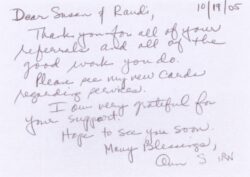 Dear Susan & Randi, 10/19/05
Thank you for all of your
referrals and all of the
good work you do.
Please see my new cards
regarding services.
I am very grateful for
your support.
Hope to see you soon.
Many Blessings,
Ann S RN